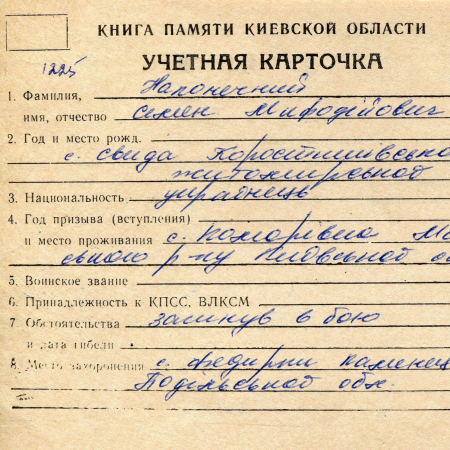 КНИГА ПАМЯТИ КИЕВСКОЙ ОБЛАСТИ
УЧЕТНАЯ КАРТОЧКА
1225
1. Фамилия, Наконечний
имя, отчество Семен Мифодійович
2. Год и место рожд.
с. Свида Коростишівсько
житомирської
3. Национальность українець
4. Год призыва (вступления)
и место проживания с. Комарівка Ма
ського р-ну Київської о
5. Воинское звание
6. Принадлежность к КПСС, ВЛКСМ
7. Обстоятельства загинув в бою
и дата гибели
8. Место захоронения с. Федирки каменец
Подільської обл.